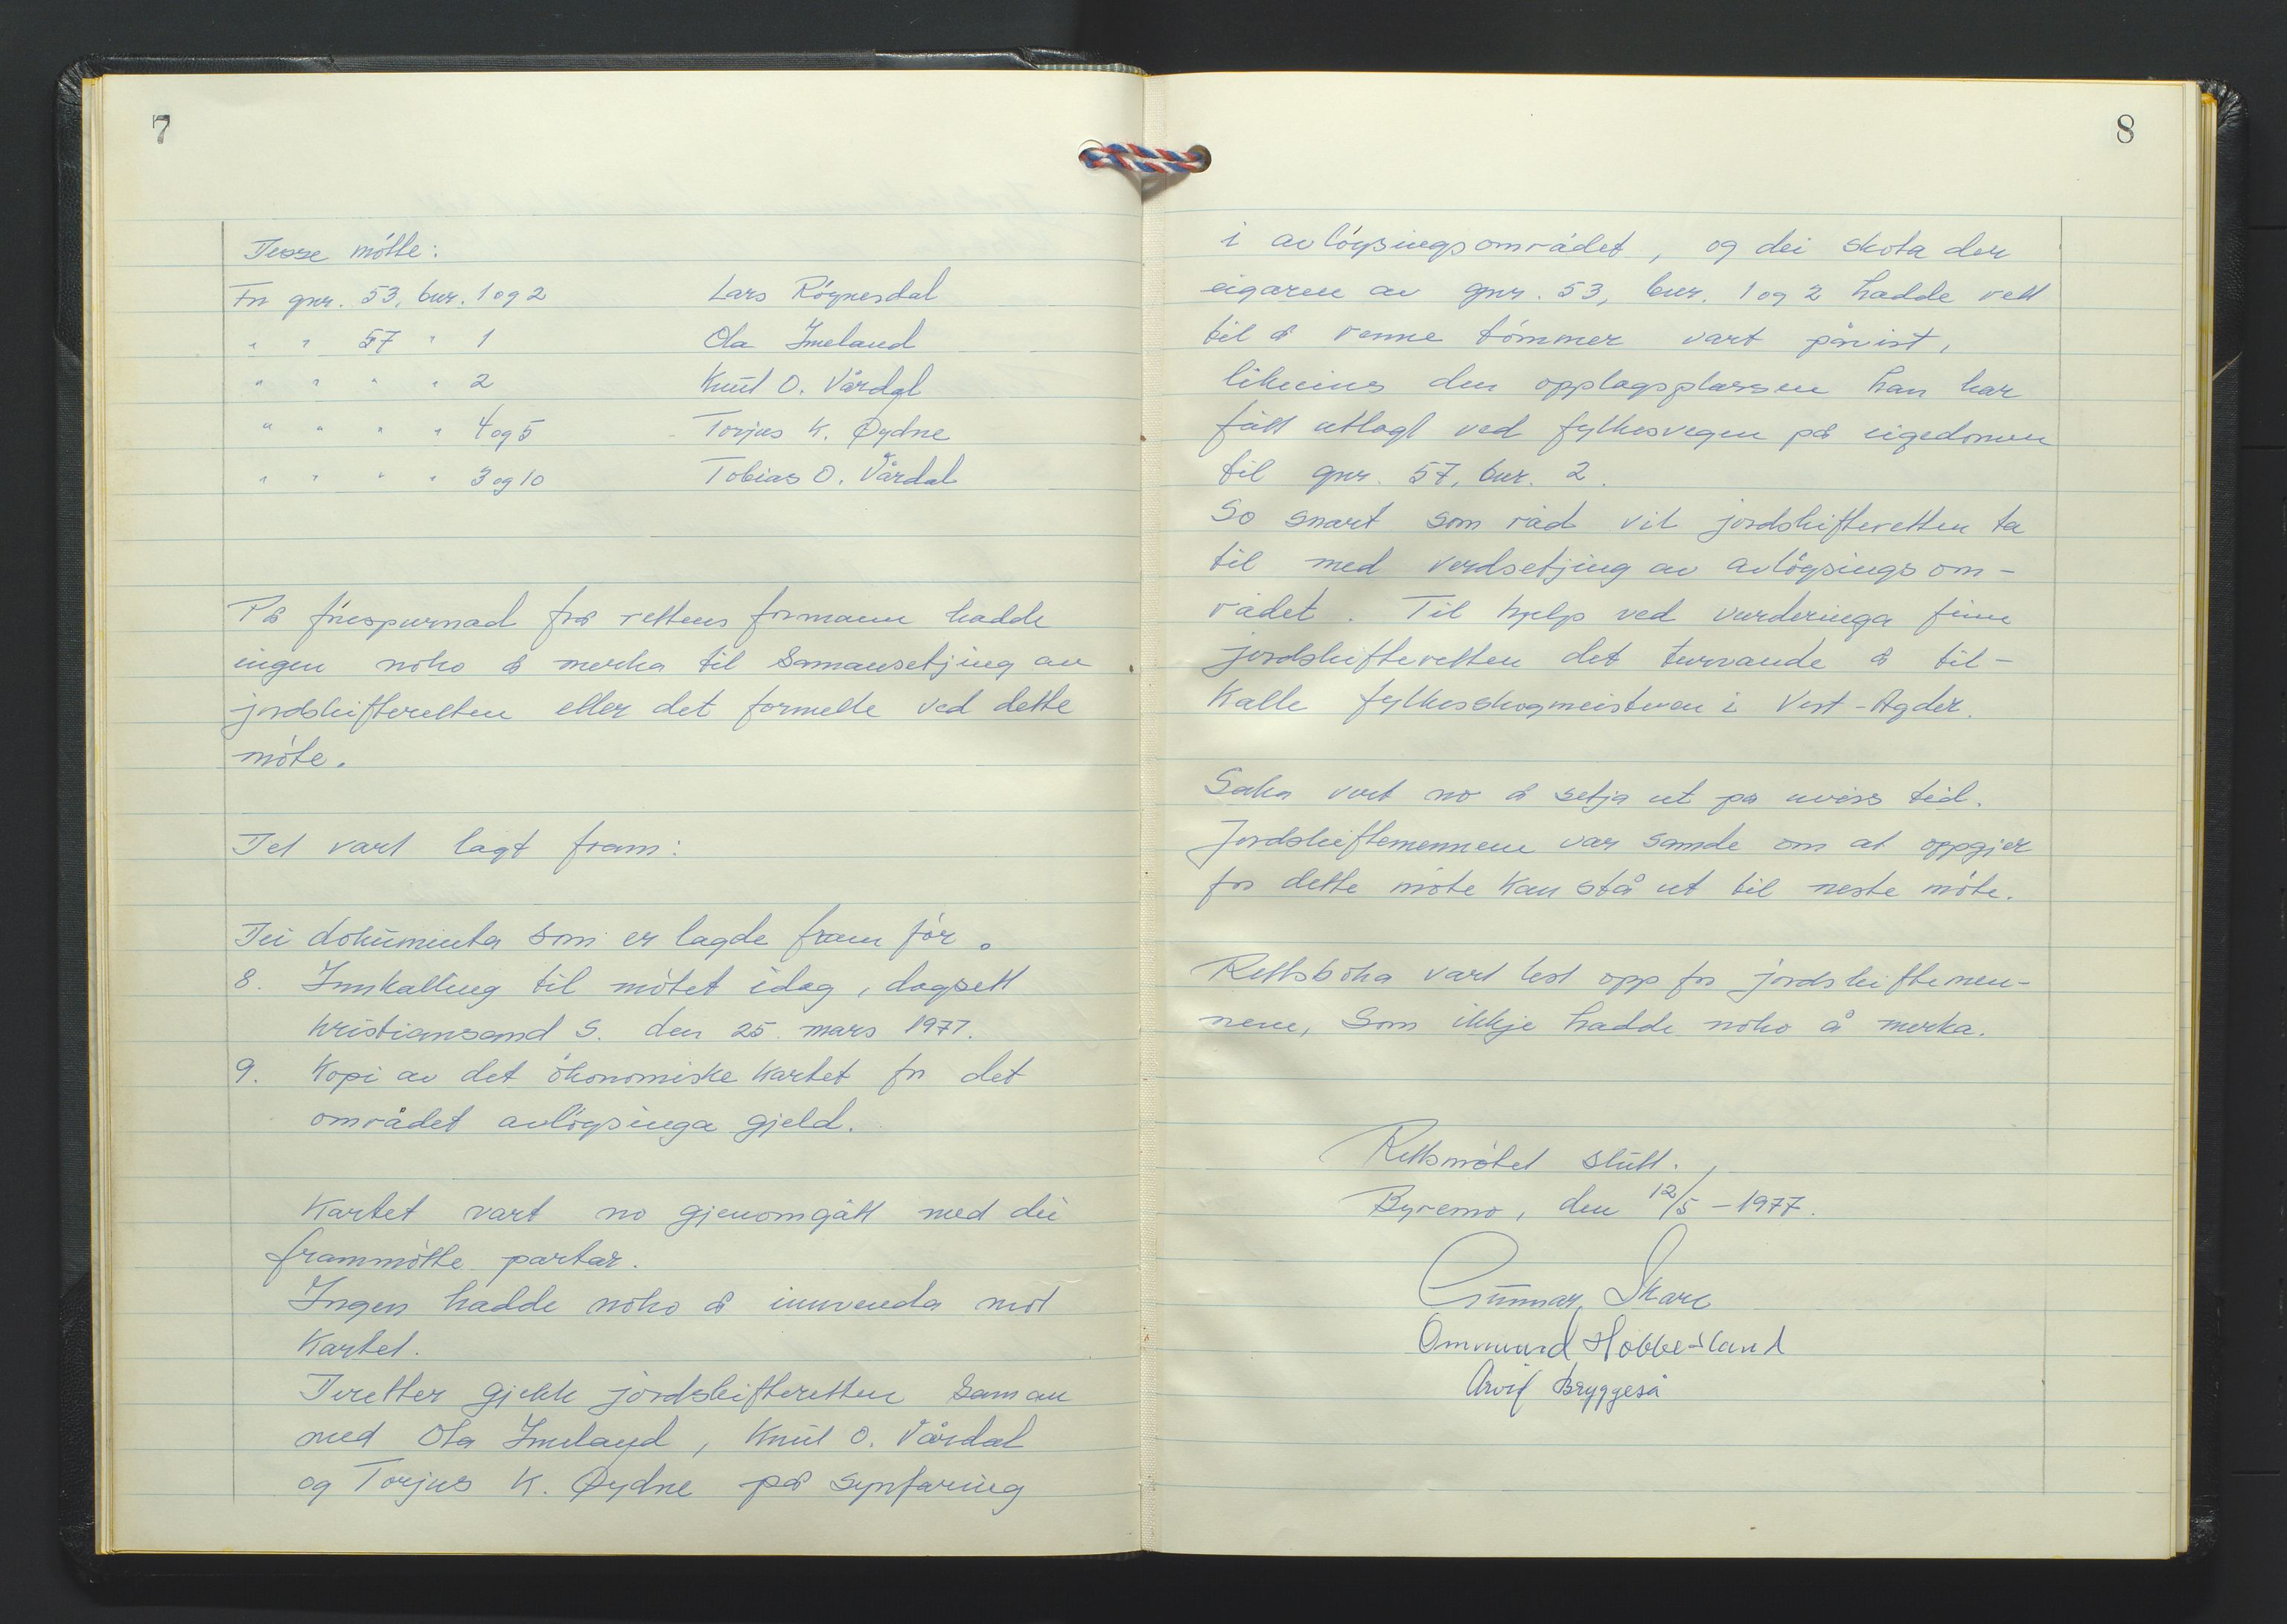 7
Desse møtte:
For gnr. 53, bnr. 1 og 2 Lars Røynesdal
" " 57 " 1 Ola Imeland
" " " " 2 Knut O. Vårdal
" " " " 4 og 5 Torjus K. Øydne
" " " " 3 og 10 Tobias O. Vårdal
På førespurnad frå rettens formann hadde
ingen noko å merka til samansetjing av
jordskifteretten eller det formelle ved dette
møte.
Det vart lagt fram:
Dei dokumenta som er lagde fram før.
8. Innkalling til møtet idag, dagsett
Kristiansand S. den 25. mars 1977.
9. Kopi av det økonomiske kartet for det
området avløysinga gjeld.
Kartet vart no gjenomgått med dei
frammøtte partar.
Ingen hadde noko å innvenda mot
kartet.
Deretter gjekk jordskifteretten saman
med Ola Imeland, Knut O. Vårdal
og Torjus K. Øydne på synfaring
8
i avløysingsområdet, og dei skota der
eigaren av gnr. 53, bnr. 1 og 2 hadde rett
til å renne tømmer vart påvist,
likeeins den opplagsplassen han har
fått utlagt ved fylkesvegen på eigedomen
til gnr. 57, bnr. 2.
So snart som råd vil jordskifteretten ta
til med verdsetjing av avløysingsom-
rådet. Til hjelp ved vurderinga finn
jordskifteretten det turvande å til-
kalle fylkesskogmeisteren i Vest-Agder.
Saka vert no å setja ut på uviss tid.
Jordskiftemennene var samde om at oppgjer
for dette møte kan stå ut til neste møte.
Rettsboka vart lest opp for jordskiftemen-
nene, som ikkje hadde noko å merka.
Rettsmøtet slutt.
Byremo, den 12/5 - 1977.
Gunnar Skare
Ommund Hobbesland
Arvif Bryggeså